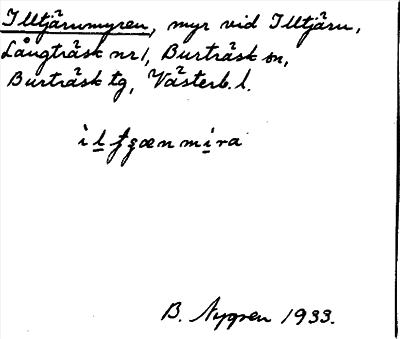 Illtjärnmyren, myr vid Illtjärn,
Långträsk nr 1, Burträsk sn,
Burträsk tg, Västerb. l.
B. Nygren 1933.